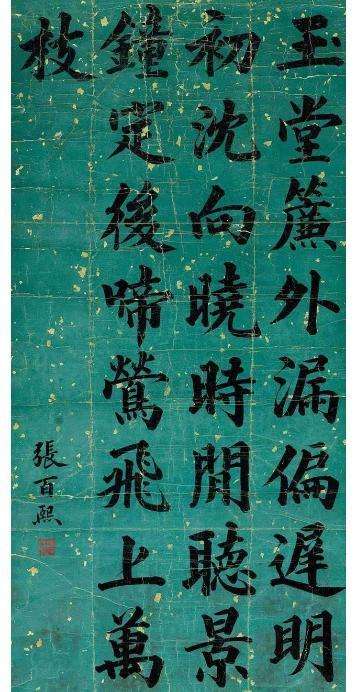 玉堂簾外漏偏遲明
初沈向曉時閒聽景
鐘定後啼鶯飛上萬
枝
張百熙